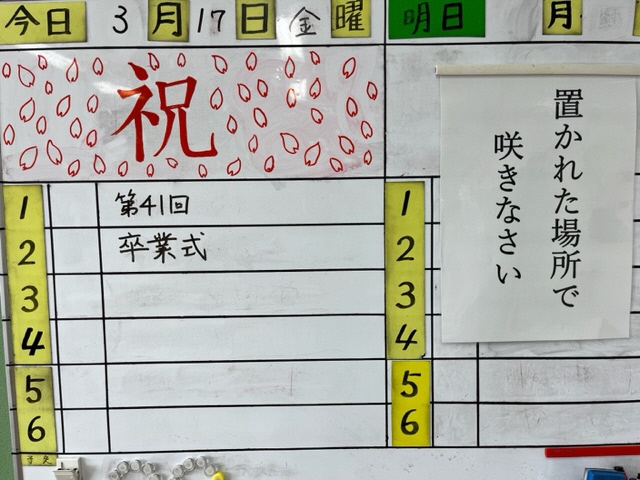 今日 3月17日金曜
明日 月
祝
1 第41回
2 卒業式
3
4
5
6
1
2
3
4
5
6
置かれた場所で
咲きなさい